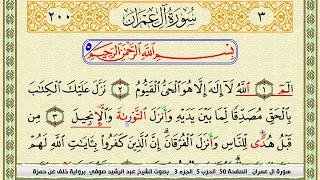 ٣ سُورَةُ آلِ عِمْرَان ٢٠٠
بِسْمِ اللَّهِ الرَّحْمَٰنِ الرَّحِيمِ
الٓمٓ ١ اللَّهُ لَا إِلَٰهَ إِلَّا هُوَ الْحَيُّ الْقَيُّومُ ٢ نَزَّلَ عَلَيْكَ الْكِتَابَ
بِالْحَقِّ مُصَدِّقًا لِّمَا بَيْنَ يَدَيْهِ وَأَنزَلَ التَّوْرَىٰةَ وَالْإِنجِيلَ ٣ مِن
قَبْلُ هُدًى لِّلنَّاسِ وَأَنزَلَ الْفُرْقَانَ إِنَّ الَّذِينَ كَفَرُوا بِـَٔايَاتِ اللَّهِ لَهُمْ
سورة آل عمران الصفحة 50 الحزب 5 الجزء 3 بصوت الشيخ عبد الرشيد صوفي برواية خلف عن حمزة